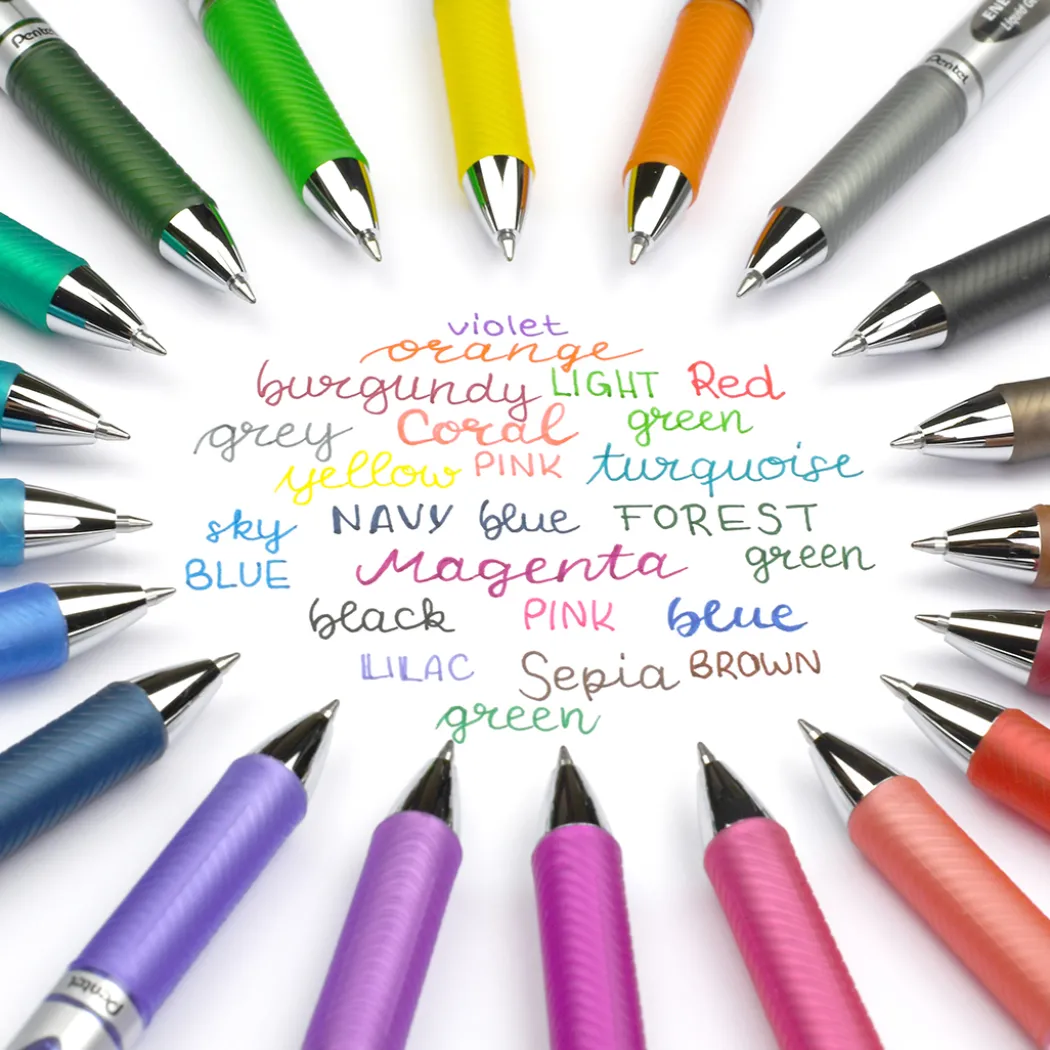 Pentel
ENE
Liquid G
Pentel
violet
orange
burgundy LIGHT Red
grey Coral green
yellow PINK turquoise
sky NAVY blue FOREST
BLUE Magenta green
black PINK blue
LILAC Sepia BROWN
green
Pentel